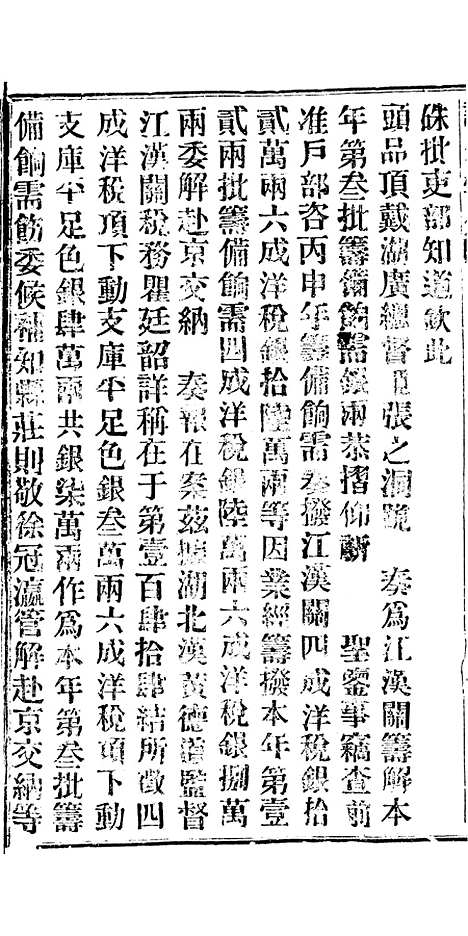 硃批吏部知道欽此
頭品頂戴湖廣總督臣張之洞跪　奏爲江漢關籌解本
年第叁批籌備餉需銀兩恭摺仰祈　　聖鑒事竊查前
准戶部咨丙申年籌備餉需奏撥江漢關四成洋稅銀拾
貳萬兩六成洋稅銀拾陸萬兩等因業經籌撥本年第壹
貳兩批籌備餉需四成洋稅銀陸萬兩六成洋稅銀捌萬
兩委解赴京交納　奏報在案茲據湖北漢黃德道監督
江漢關稅務瞿廷韶詳稱在于第壹百肆拾肆結所徵四
成洋稅項下動支庫平足色銀叁萬兩六成洋稅項下動
支庫平足色銀肆萬兩共銀柒萬兩作爲本年第叁批籌
備餉需飭委候補知縣莊則敬徐冠瀛管解赴京交納等